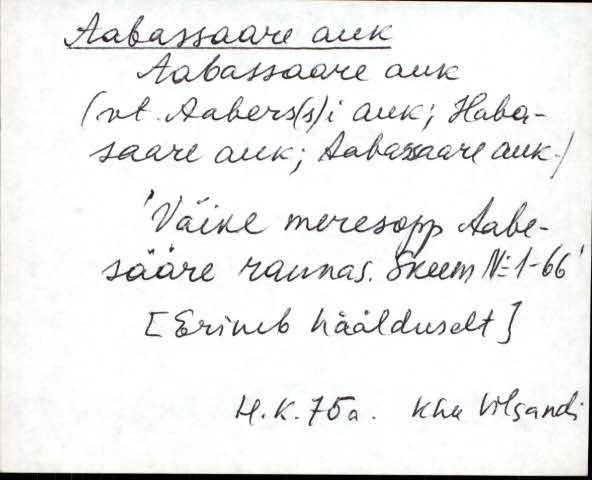 Aabassaare auk
Aabassaare auk
(vt. Aabers(s)i auk; Haba-
saare auk; Aabassaare auk.)
'Väike meresopp Aabe-
sääre rannas. Skeem №1-66'
[Erineb häälduselt]
H.K. 75a. Khk Vilsandi